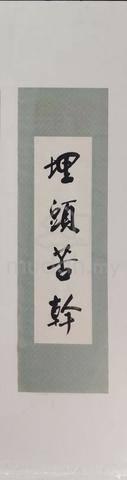 埋頭苦幹